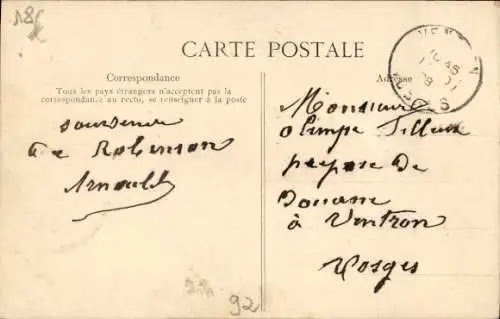 18
CARTE POSTALE
Correspondance
Tous les pays étrangers n'acceptent pas la
correspondance au recto, se renseigner à la poste
Adresse
souvenir
de Robinson
Arnould
Monsieur
olimpe
prepose De
Douane
à Ventron
Vosges
92